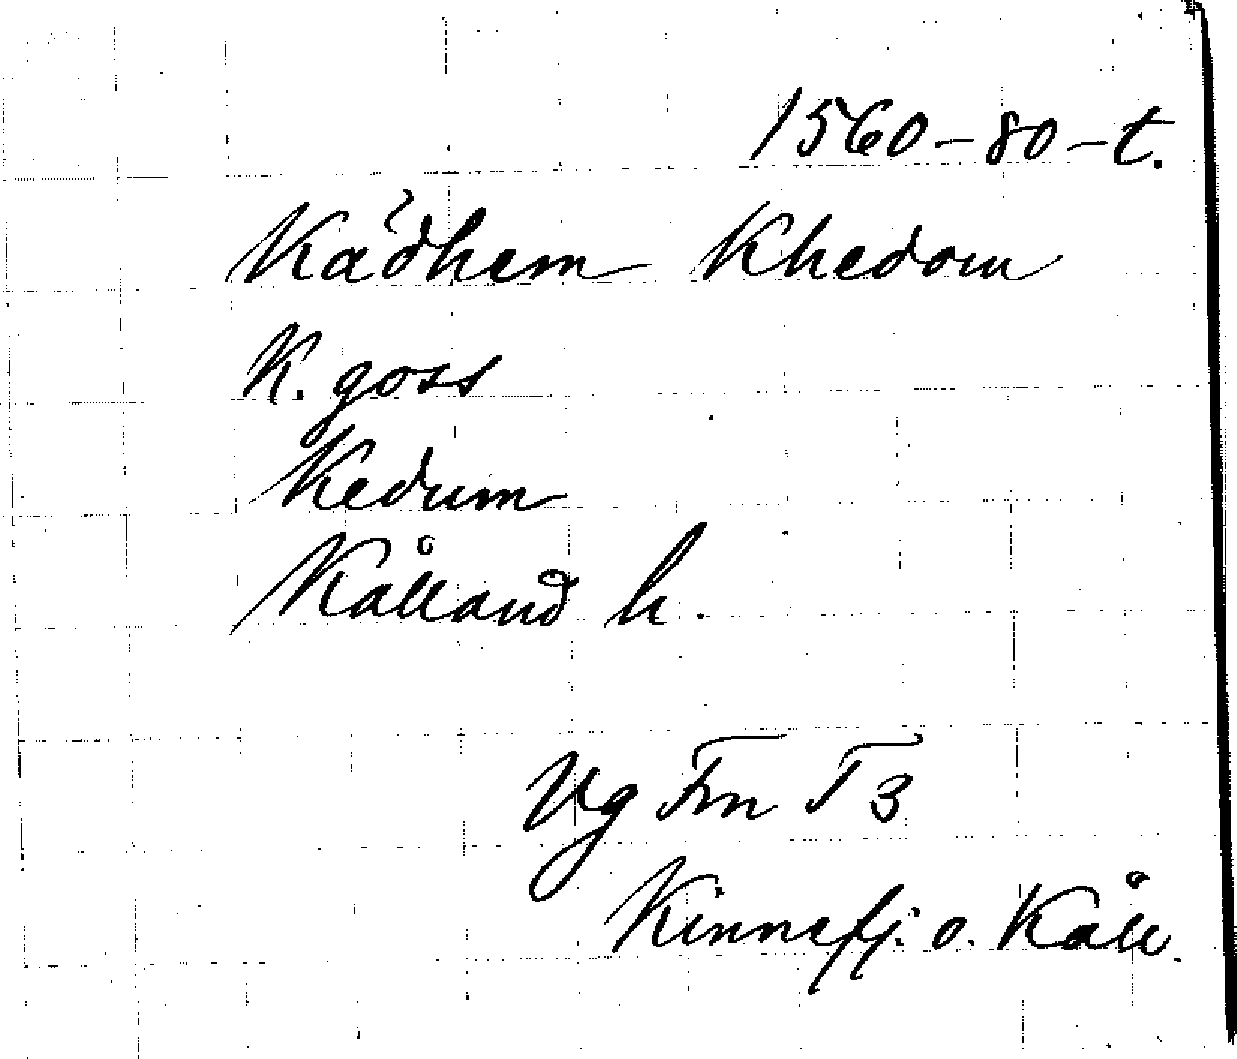 1560-80-t.
Kädhem Khedom
K. goss
Kedum
Kålland h.
Vg Fm T 3
Kinnefj. o. Kåll.